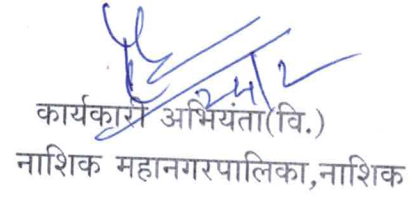 कार्यकारी अभियंता(वि.)
नाशिक महानगरपालिका,नाशिक